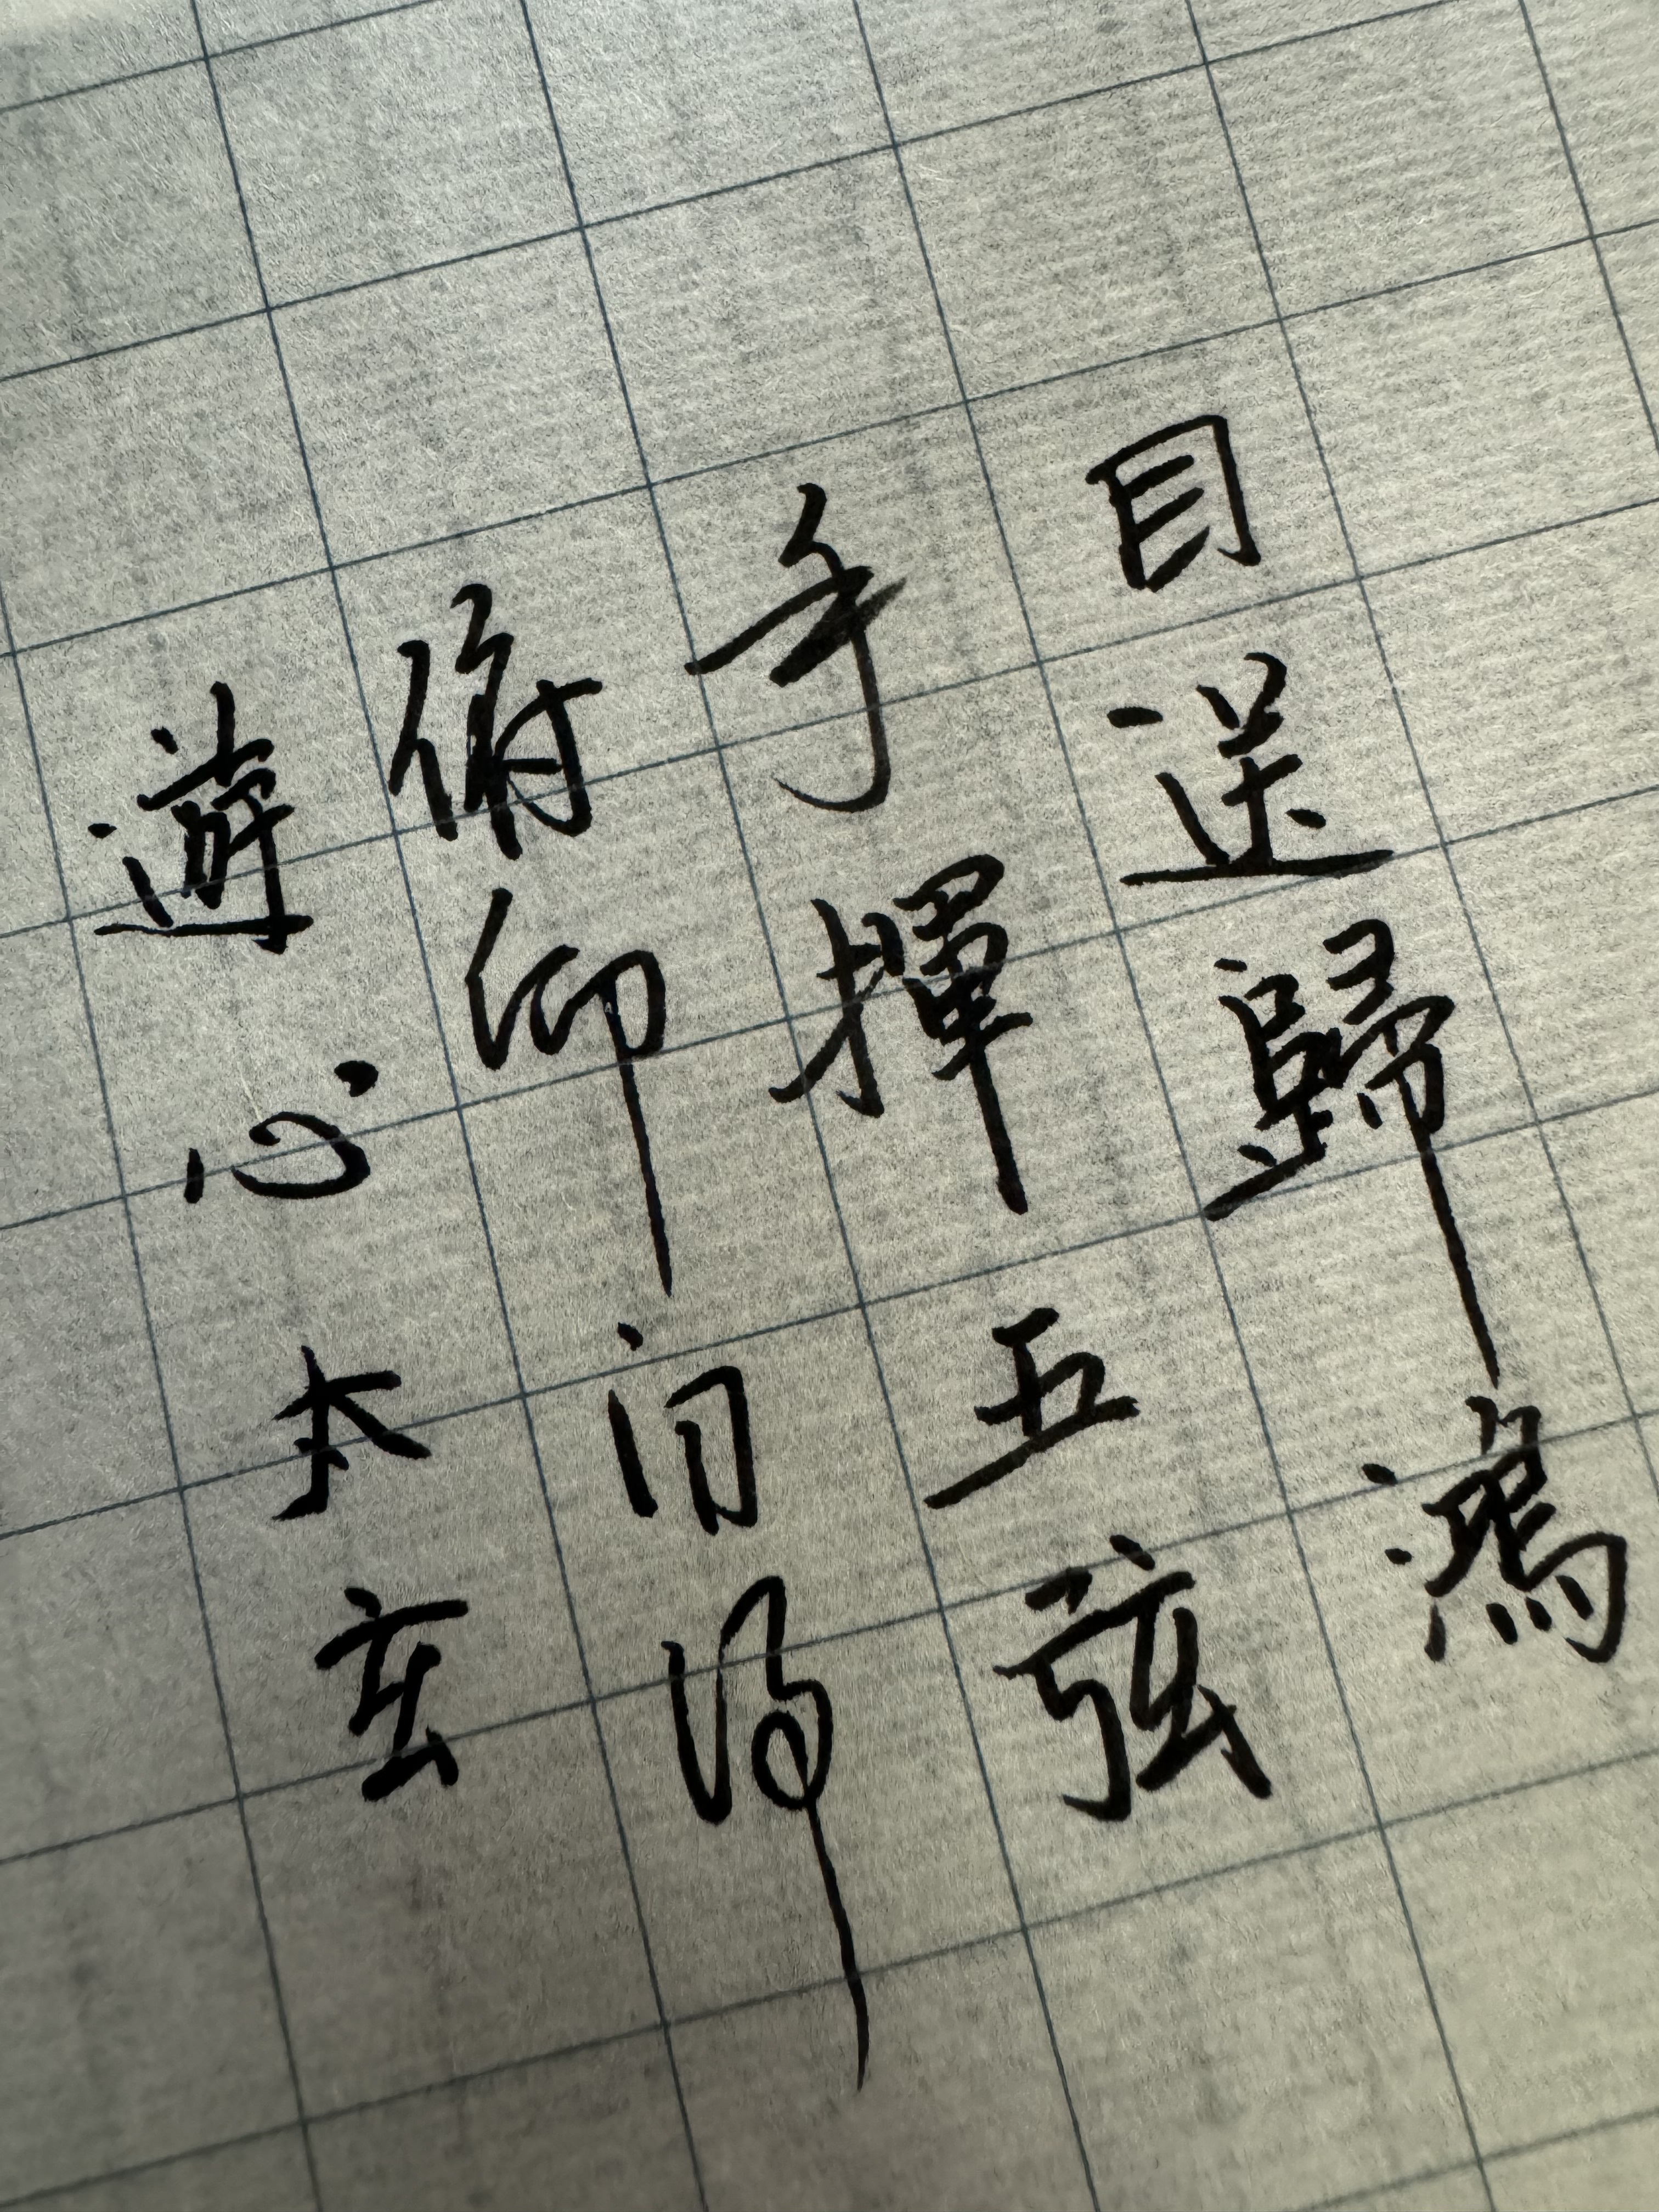 目送歸鴻
手揮五弦
俯仰自得
遊心太玄